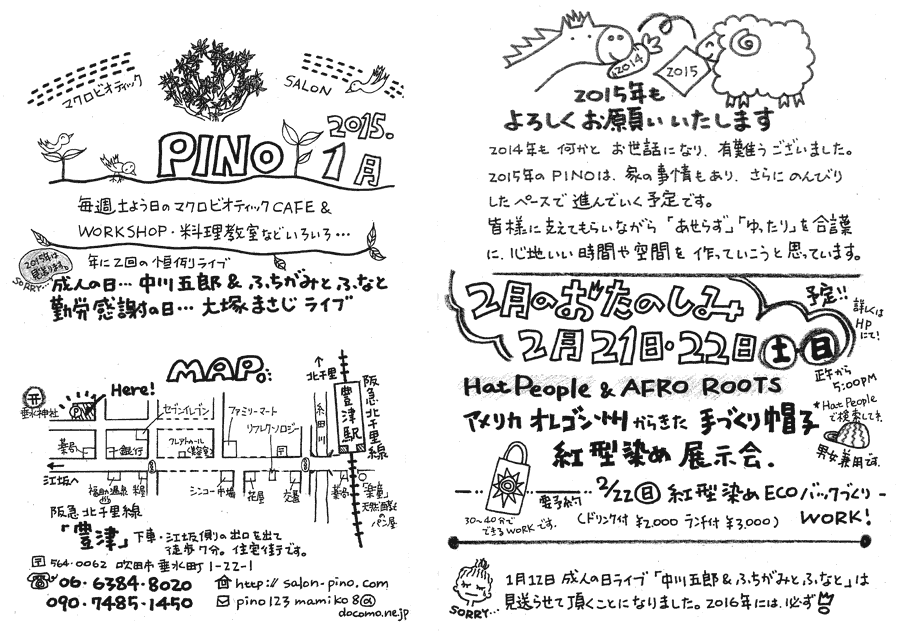 マクロビオティック
SALON
PINO
2015.
1月
毎週土よう日のマクロビオティックCAFE &
WORKSHOP・料理教室などいろいろ…
2015年は
見送ります。
SORRY…
年に2回の恒例ライブ
成人の日… 中川五郎 & ふちがみとふなと
勤労感謝の日… 大塚まさじ ライブ
MAP
Here!
↑北千里
豊津駅
阪急北千里線
垂水神社
PINO
セブンイレブン
ファミリーマート
リフレクソロジー
糸田川
薬局
銀行
クレアトゥール
江坂へ
米屋
シンコー市場
花屋
交番
薬局
天然酵母
のパン屋
阪急北千里線
「豊津」下車・江坂側の出口を出て
徒歩7分。住宅街です。
〒564-0062 吹田市垂水町1-22-1
06-6384-8020
http://salon-pino.com
090-7485-1450
pino123mamiko8@
docomo.ne.jp
2014
2015
2015年も
よろしくお願いいたします
2014年も何かと お世話になり、有難うございました。
2015年のPINOは、家の事情もあり、さらに のんびり
したペースで 進んでいく予定です。
皆様に支えてもらいながら 「あせらず」「ゆったり」を合言葉
に、心地いい時間や空間を 作っていこうと思っています。
2月のおたのしみ
予定!!
2月21日・22日 土・日
詳しくは
HP
にて!
Hat People & AFRO ROOTS
正午から
5:00PM
アメリカ オレゴン州からきた 手づくり帽子
*Hat People
で検索してネ
紅型染め 展示会.
男女兼用です。
電予約
2/22日 紅型染めECOバックづくり
WORK!
30~40分で
できるWORKです.
(ドリンク付 ¥2000 ランチ付 ¥3,000)
SORRY…
1月12日 成人の日ライブ「中川五郎&ふちがみとふなと」は
見送らせて頂くことになりました。2016年には、必ず!